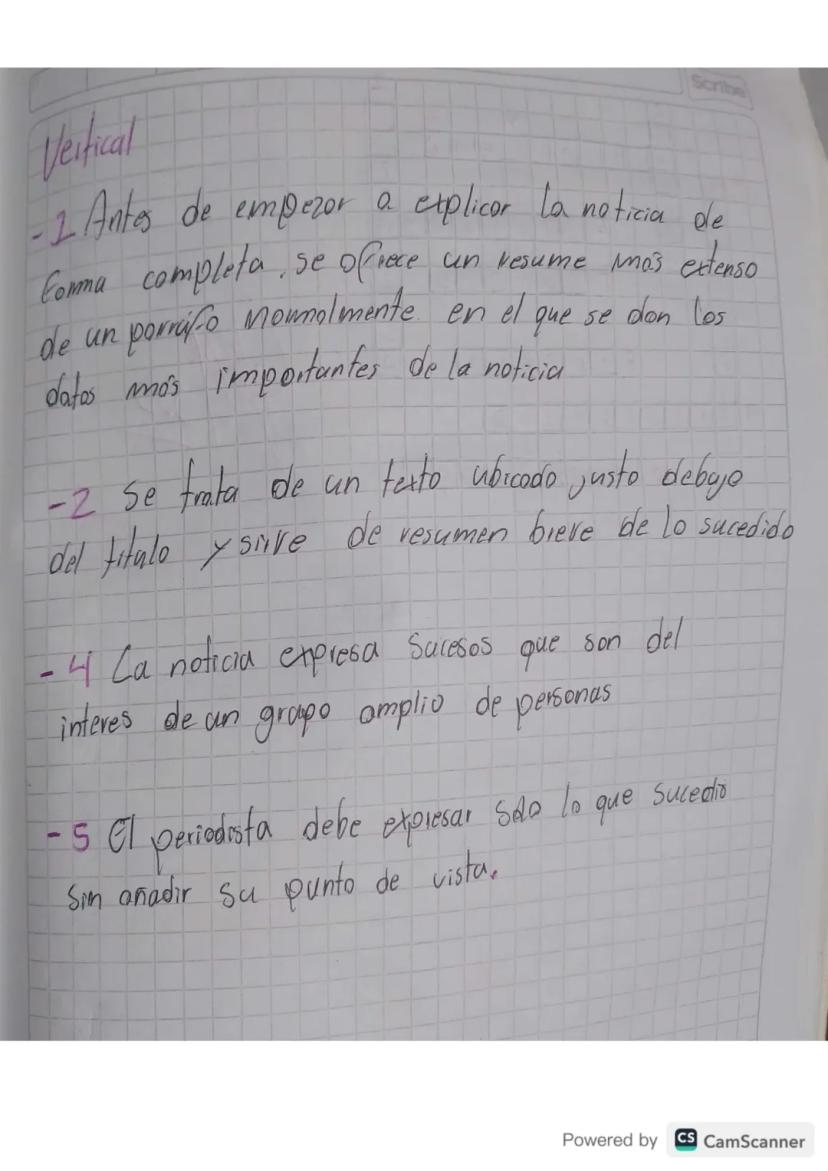 Scribe
Vertical
-1 Antes de empezar a explicar la noticia de
forma completa, se ofrece un resume más extenso
de un parráfo normalmente en el que se dan los
datos más importantes de la noticia
-2 Se trata de un texto ubicado justo debajo
del titulo y sirve de resumen breve de lo sucedido
-4 La noticia expresa Sucesos que son del
interes de un grupo amplio de personas
-5 El periodista debe expresar Solo lo que sucedio
Sin añadir su punto de vista.
Powered by CS CamScanner